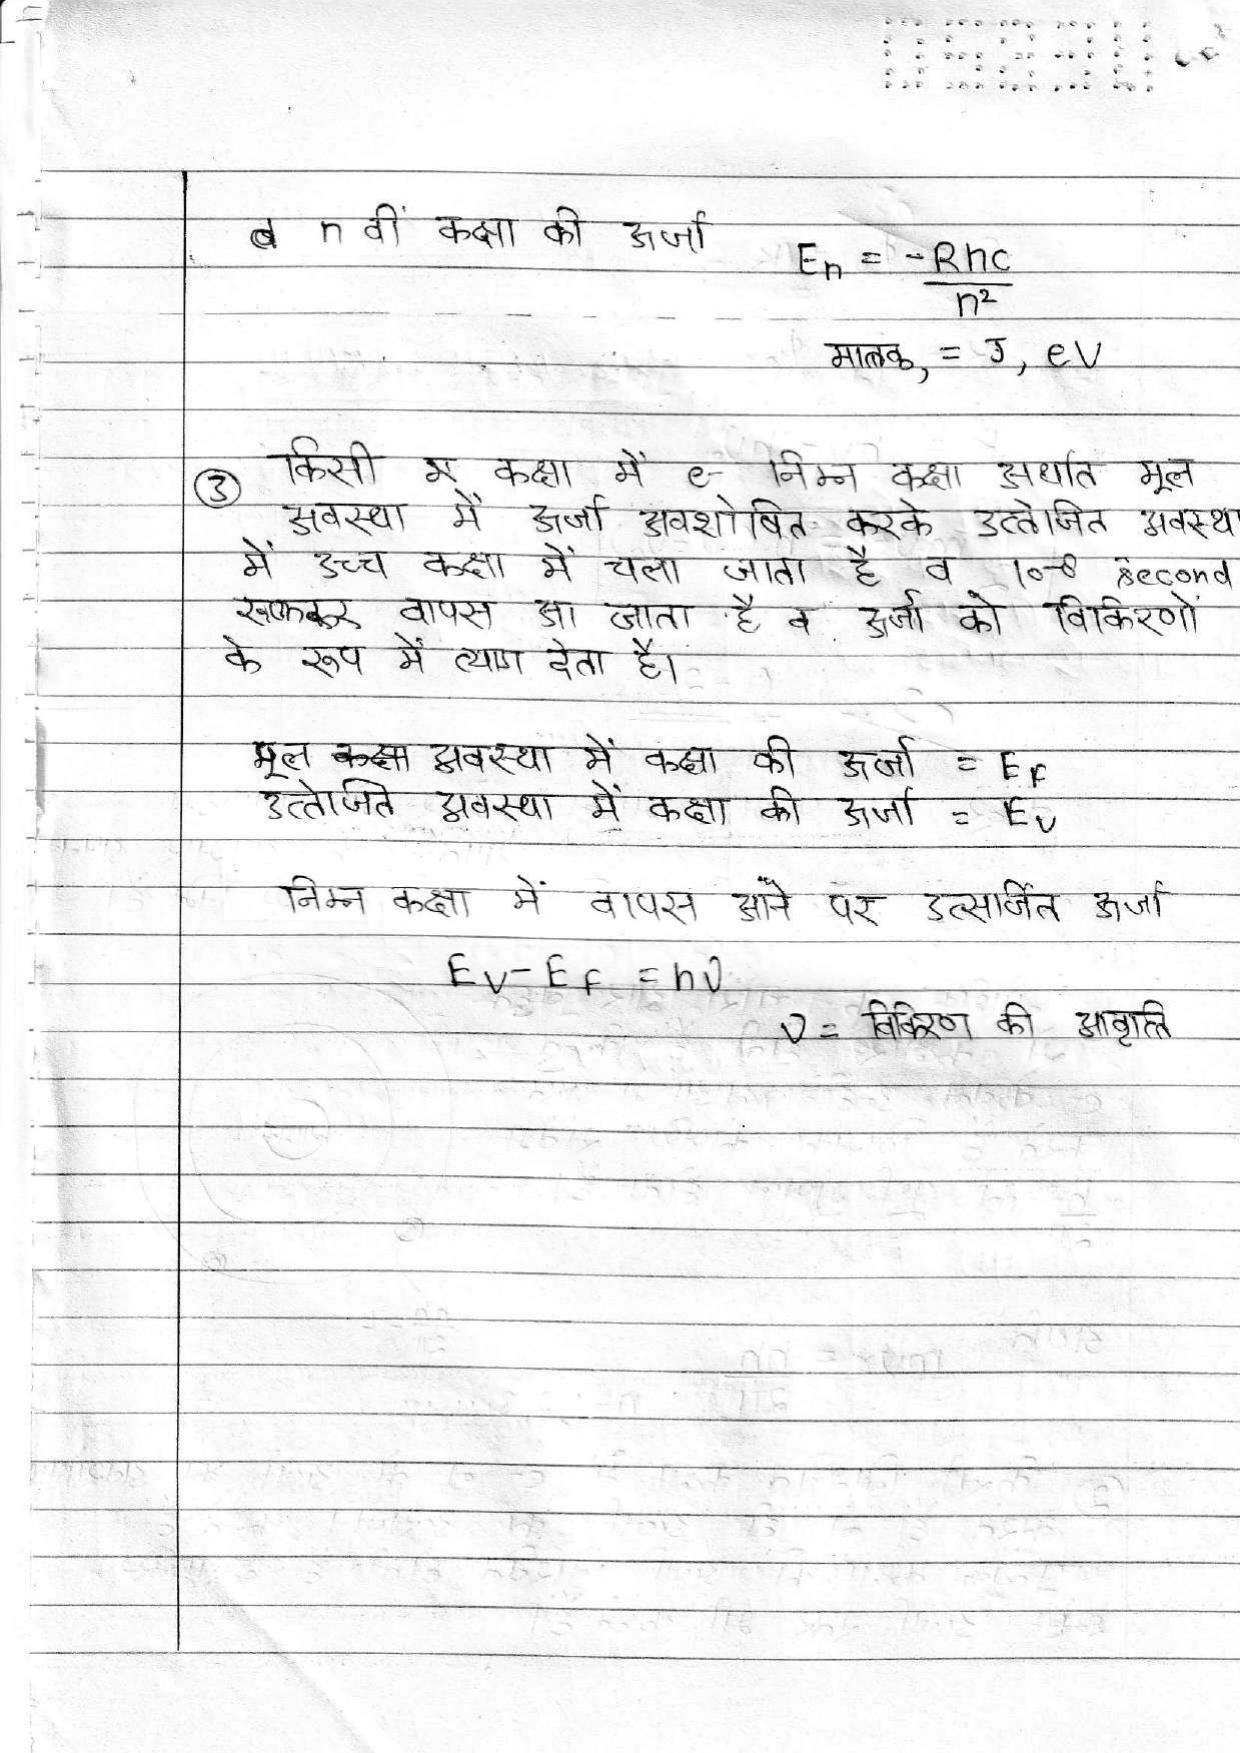 n वीं कक्षा की ऊर्जा
En = -Rhc
n²
मात्रक, = J, eV
③ किसी कक्षा में e- निम्न कक्षा अर्थात मूल
अवस्था में ऊर्जा अवशोषित करके उत्तेजित अवस्था
में उच्च कक्षा में चला जाता है व 10-8 second
रूककर वापस आ जाता है व ऊर्जा को विकिरणों
के रूप में त्याग देता है।
मूल कक्षा अवस्था में कक्षा की ऊर्जा = EF
उत्तेजित अवस्था में कक्षा की ऊर्जा = EV
निम्न कक्षा में वापस आने पर उत्सर्जित ऊर्जा
EV - EF = hν
ν = विकिरण की आवृत्ति